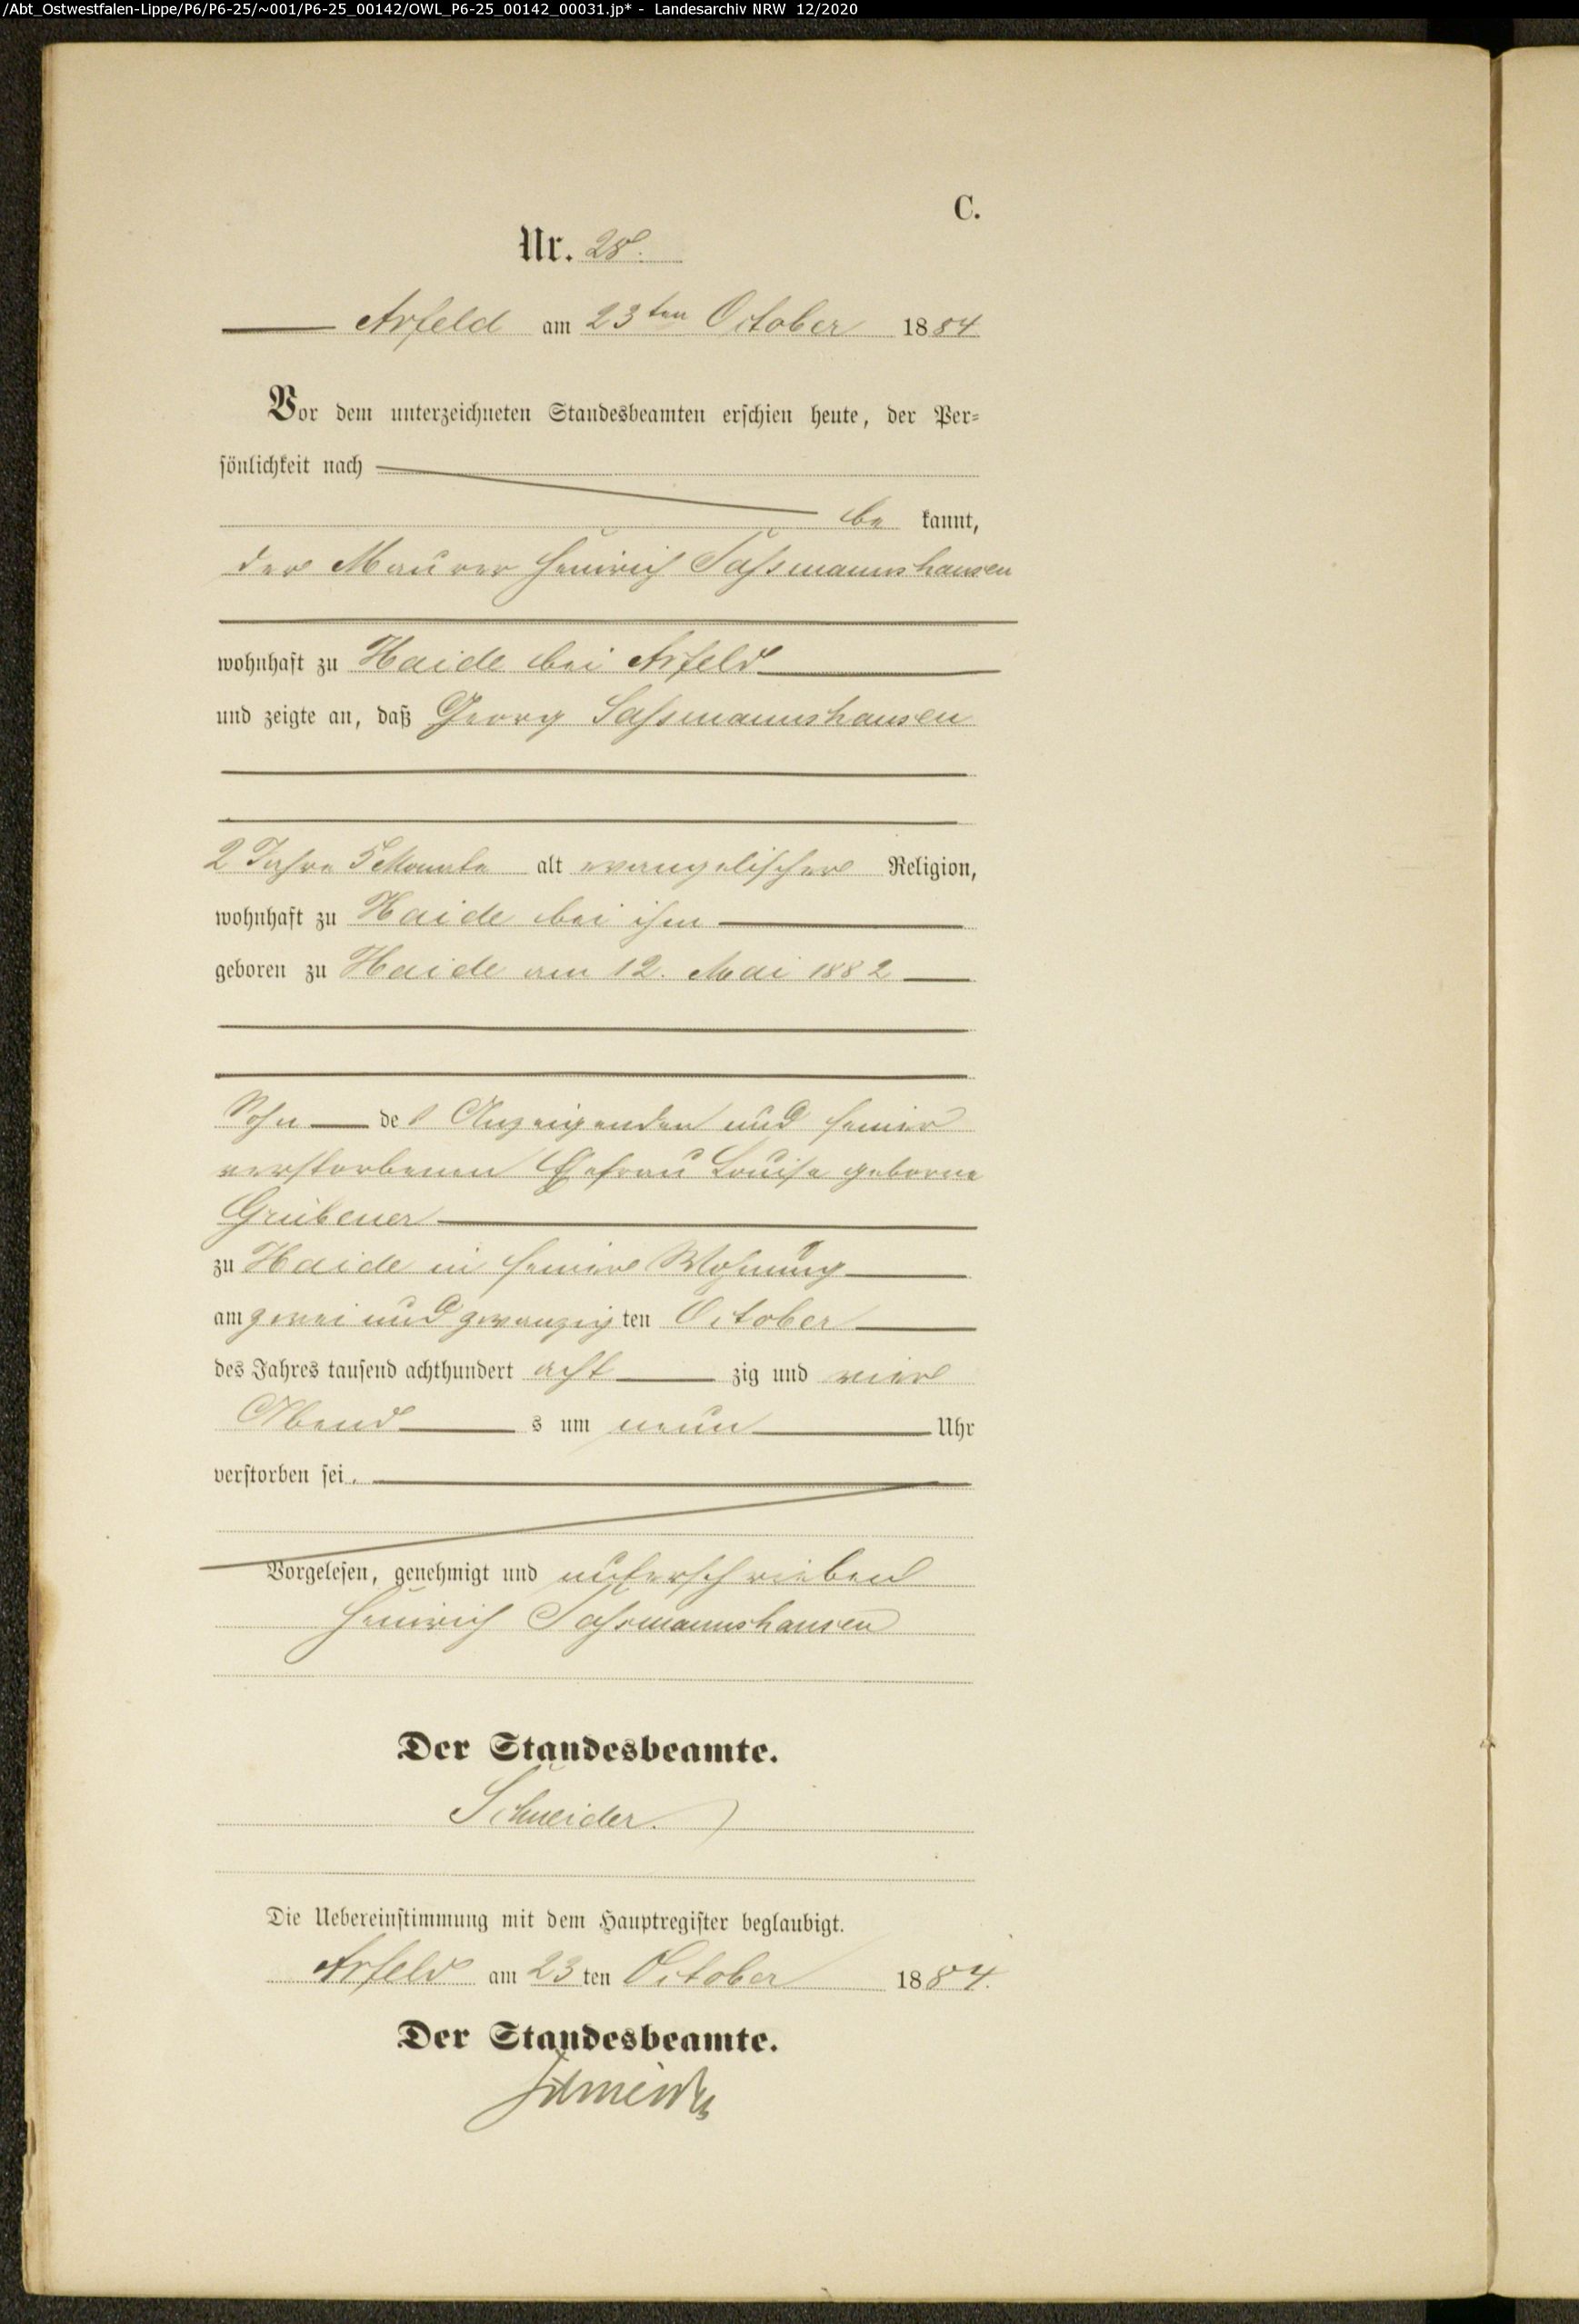 /Abt_Ostwestfalen-Lippe/P6/P6-25/~001/P6-25_00142/OWL_P6-25_00142_00031.jp* - Landesarchiv NRW 12/2020
C.
Nr. 28.
Arfeld am 23ten October 1884
Vor dem unterzeichneten Standesbeamten erschien heute, der Per-
sönlichkeit nach
be kannt,
der Maurer Heinrich Saßmannshausen
wohnhaft zu Haide bei Arfeld
und zeigte an, daß Georg Saßmannshausen
2 Jahre 5 Monate alt evangelischer Religion,
wohnhaft zu Haide bei ihm
geboren zu Haide am 12. Mai 1882
Sohn des Anzeigenden und seiner
verstorbenen Ehefrau Louise geborne
Grübener
zu Haide in seiner Wohnung
am zwei und zwanzigten October
des Jahres tausend achthundert acht zig und vier
Abend s um neun Uhr
verstorben sei.
Vorgelesen, genehmigt und unterschrieben
Heinrich Saßmannshausen
Der Standesbeamte.
Schneider.
Die Uebereinstimmung mit dem Hauptregister beglaubigt.
Arfeld am 23 ten October 1884.
Der Standesbeamte.
Schneider